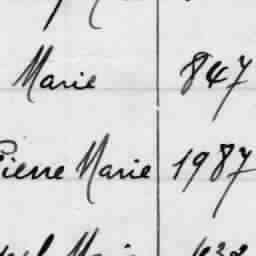 Marie 847
Pierre Marie 1987